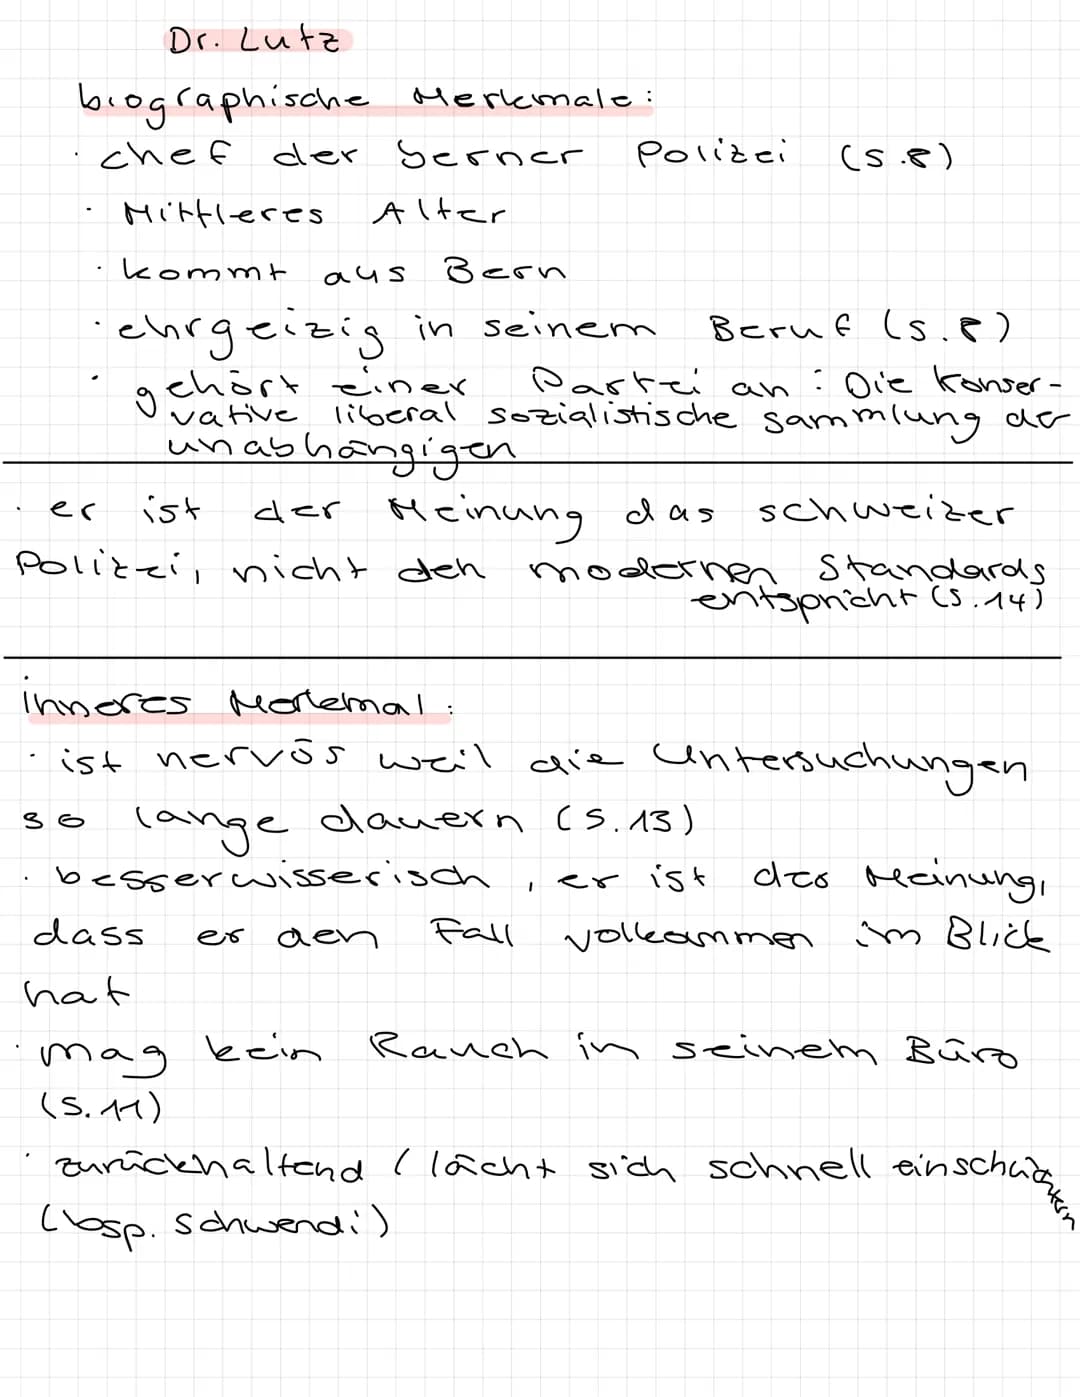 Dr. Lutz
biographische Merkmale:
· chef der Berner Polizei (S.8)
· Mittleres Alter
· kommt aus Bern
· ehrgeizig in seinem Beruf (S.8)
· gehört einer Partei an: Die Konser-
vative liberal sozialistische sammlung der
unabhängigen
· er ist der Meinung das schweizer
Polizei, nicht den modernen Standards
entspricht (S.14)
inneres Merkmal:
· ist nervös weil die Untersuchungen
so lange dauern (S.13)
· besserwisserisch, er ist der Meinung,
dass er den Fall vollkommen im Blick
hat
· mag kein Rauch in seinem Büro
(S.11)
· zurückhaltend / lächt sich schnell einschüchtern
(bsp. Schwendi)